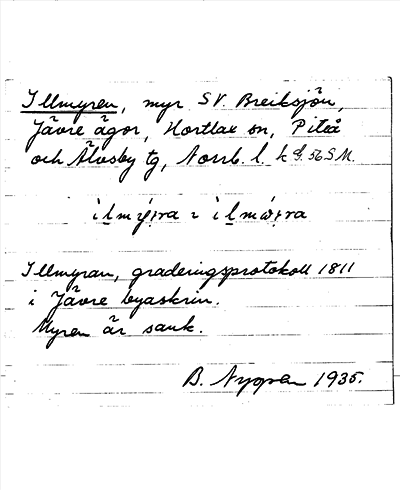 Illmyren, myr SV. Breiksjön,
Jävre ägor, Hortlax sn, Piteå
och Älvsby tg, Norrb. l. k bl. 56 S.M.
Illmyran, graderingsprotokoll 1811
i Jävre byaskrin.
Myren är sank.
B. Nygren 1935.